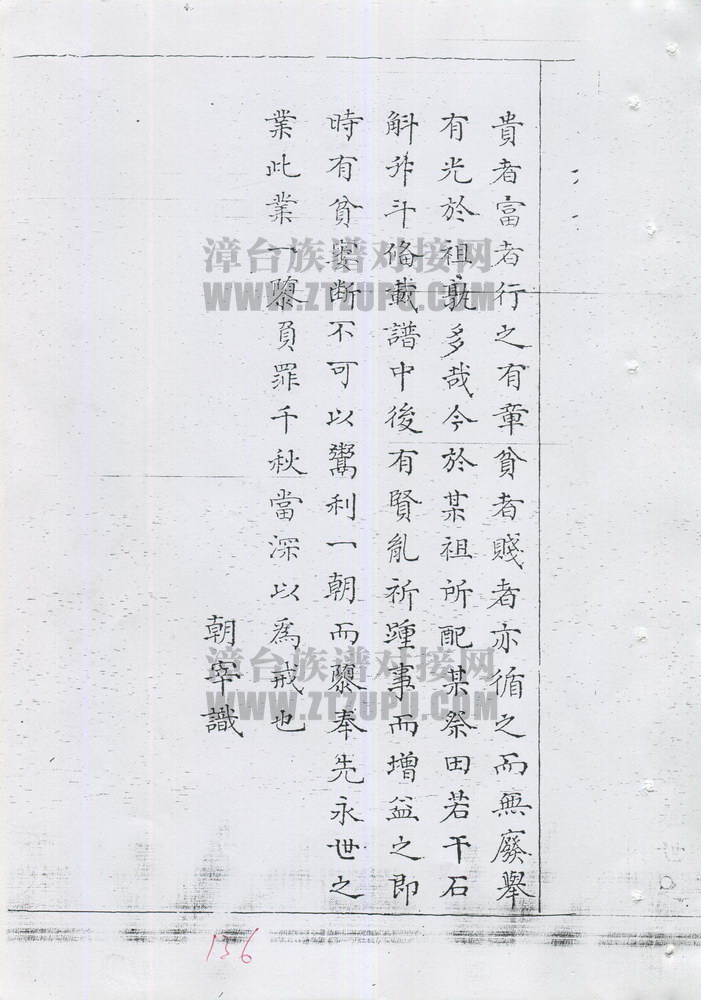 貴者富者行之有章貧者賤者亦循之而無廢舉
有光於祖孰多哉今於某祖所配某祭田若干石
斛升斗俻載譜中後有賢胤祈踵事而增益之即
時有貧窶斷不可以鬻利一朝而隳奉先永世之
業此業一隳負罪千秋當深以為戒也
朝宰識
漳台族谱对接网
WWW.ZTZUPU.COM
漳台族谱对接网
WWW.ZTZUPU.COM
136